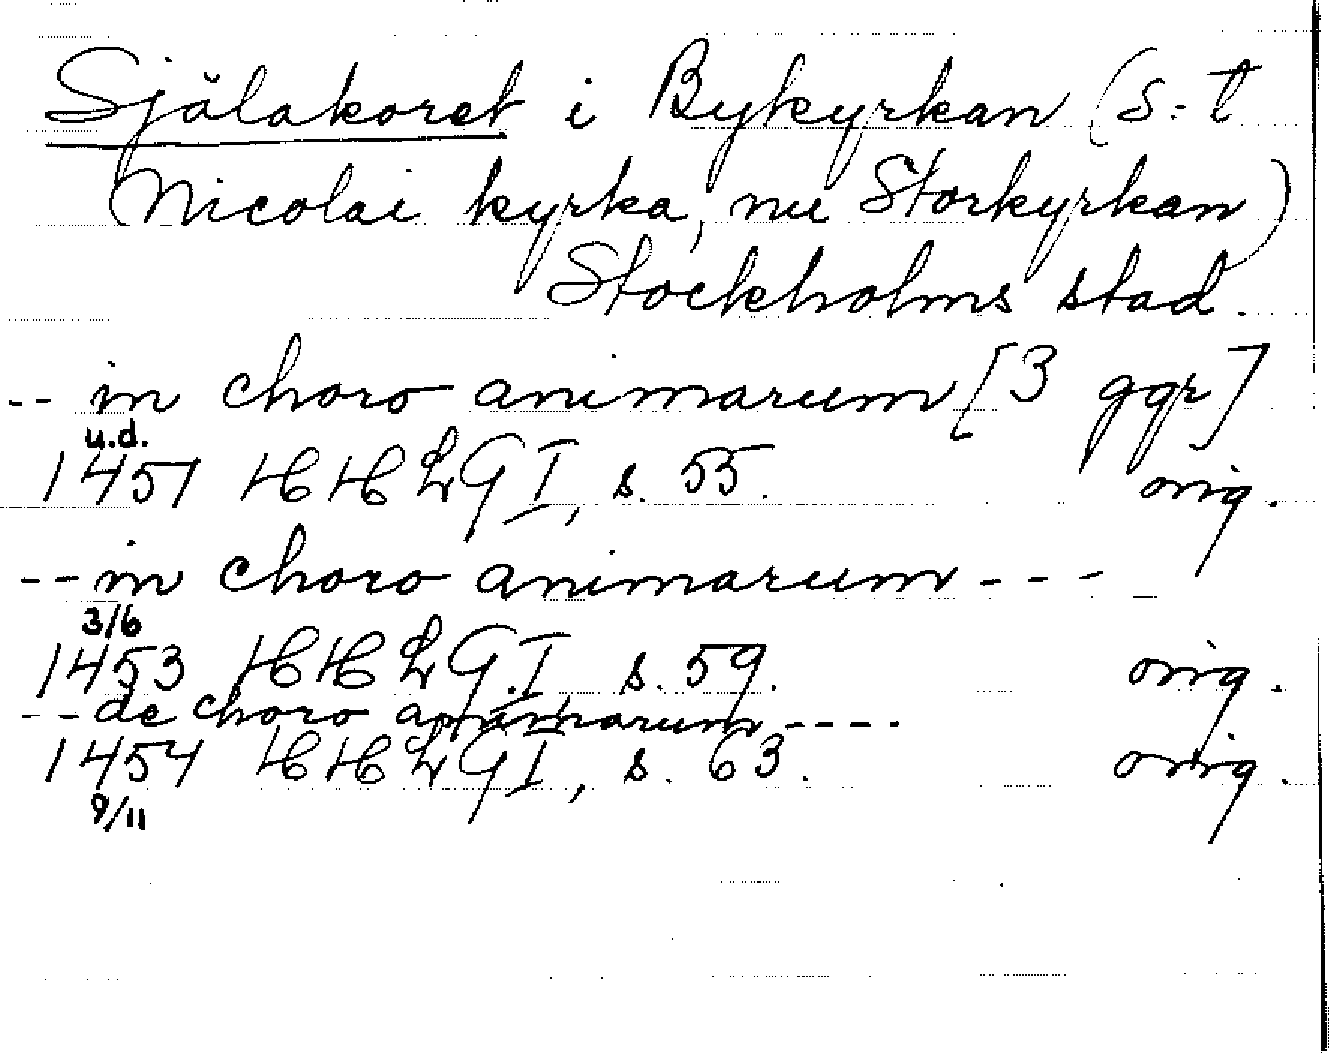 Själakoret i Bykyrkan (S:t
Nicolai kyrka, nu Storkyrkan)
Stockholms stad.
-- in choro animarum [3 ggr]
u.d.
1451 HHLG I, s. 55. orig.
-- in choro animarum ---
3/6
1453 HHLG I, s. 59. orig.
-- de choro animarum ----
1454 HHLG I, s. 63. orig.
9/11